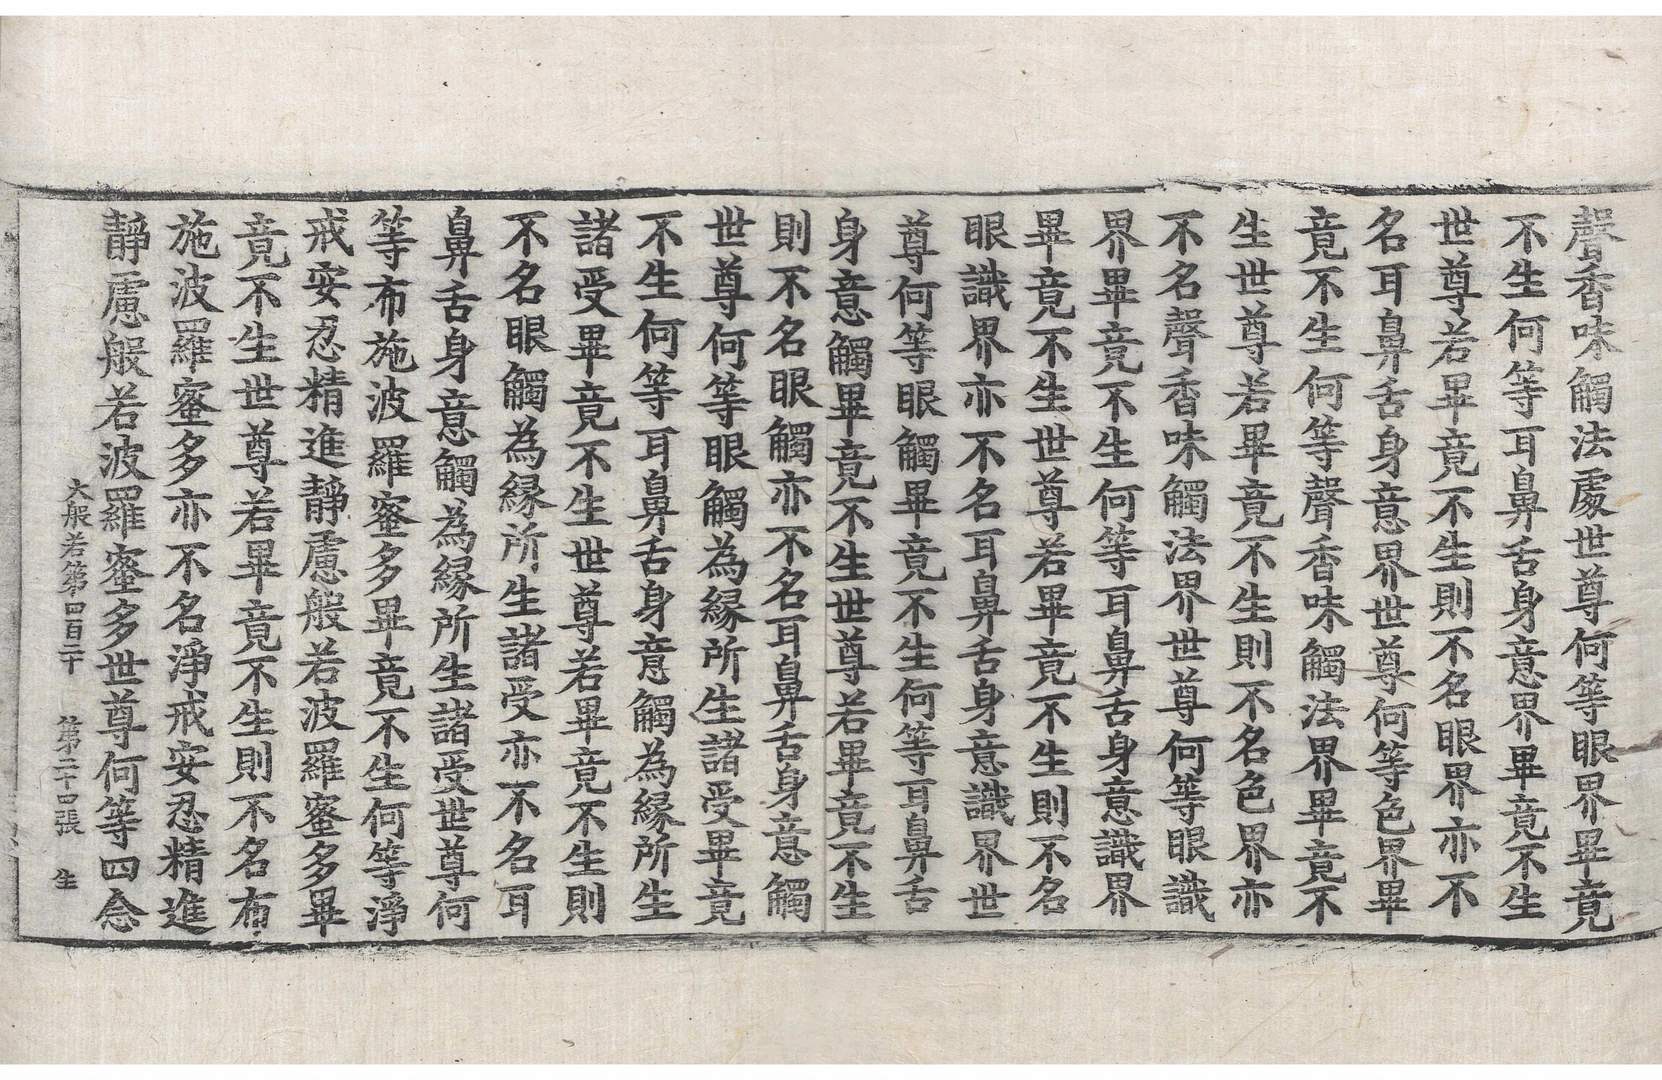 聲香味觸法處世尊何等眼界畢竟
不生何等耳鼻舌身意界畢竟不生
世尊若畢竟不生則不名眼界亦不
名耳鼻舌身意界世尊何等色界畢
竟不生何等聲香味觸法界畢竟不
生世尊若畢竟不生則不名色界亦
不名聲香味觸法界世尊何等眼識
界畢竟不生何等耳鼻舌身意識界
畢竟不生世尊若畢竟不生則不名
眼識界亦不名耳鼻舌身意識界世
尊何等眼觸畢竟不生何等耳鼻舌
身意觸畢竟不生世尊若畢竟不生
則不名眼觸亦不名耳鼻舌身意觸
世尊何等眼觸為緣所生諸受畢竟
不生何等耳鼻舌身意觸為緣所生
諸受畢竟不生世尊若畢竟不生則
不名眼觸為緣所生諸受亦不名耳
鼻舌身意觸為緣所生諸受世尊何
等布施波羅蜜多畢竟不生何等淨
戒安忍精進靜慮般若波羅蜜多畢
竟不生世尊若畢竟不生則不名布
施波羅蜜多亦不名淨戒安忍精進
靜慮般若波羅蜜多世尊何等四念
大般若第四百二十 第二十四張 生